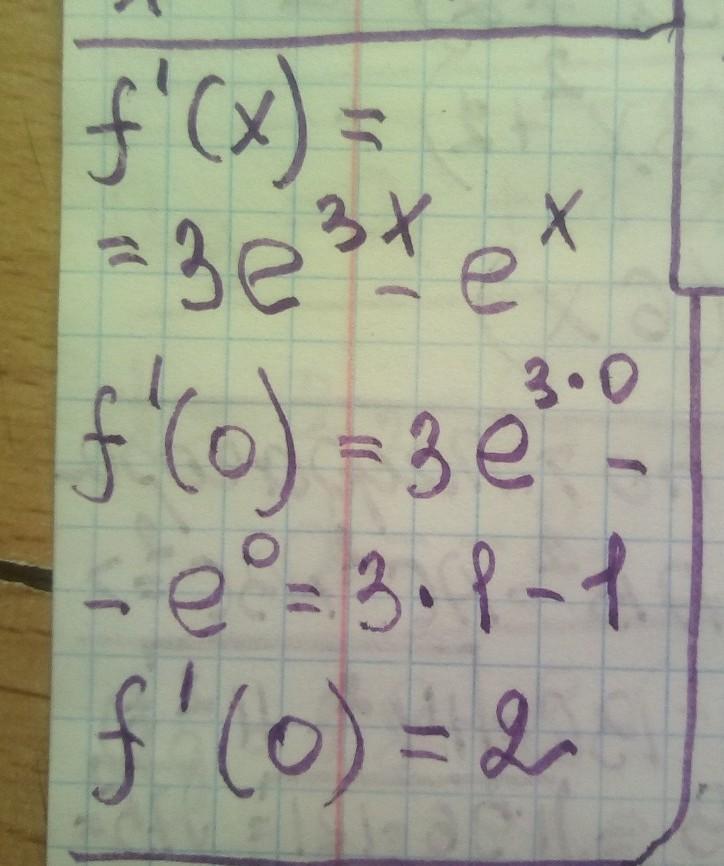 f'(x) =
= 3e^{3x} - e^x
f'(0) = 3e^{3·0} -
- e^0 = 3·1 - 1
f'(0) = 2